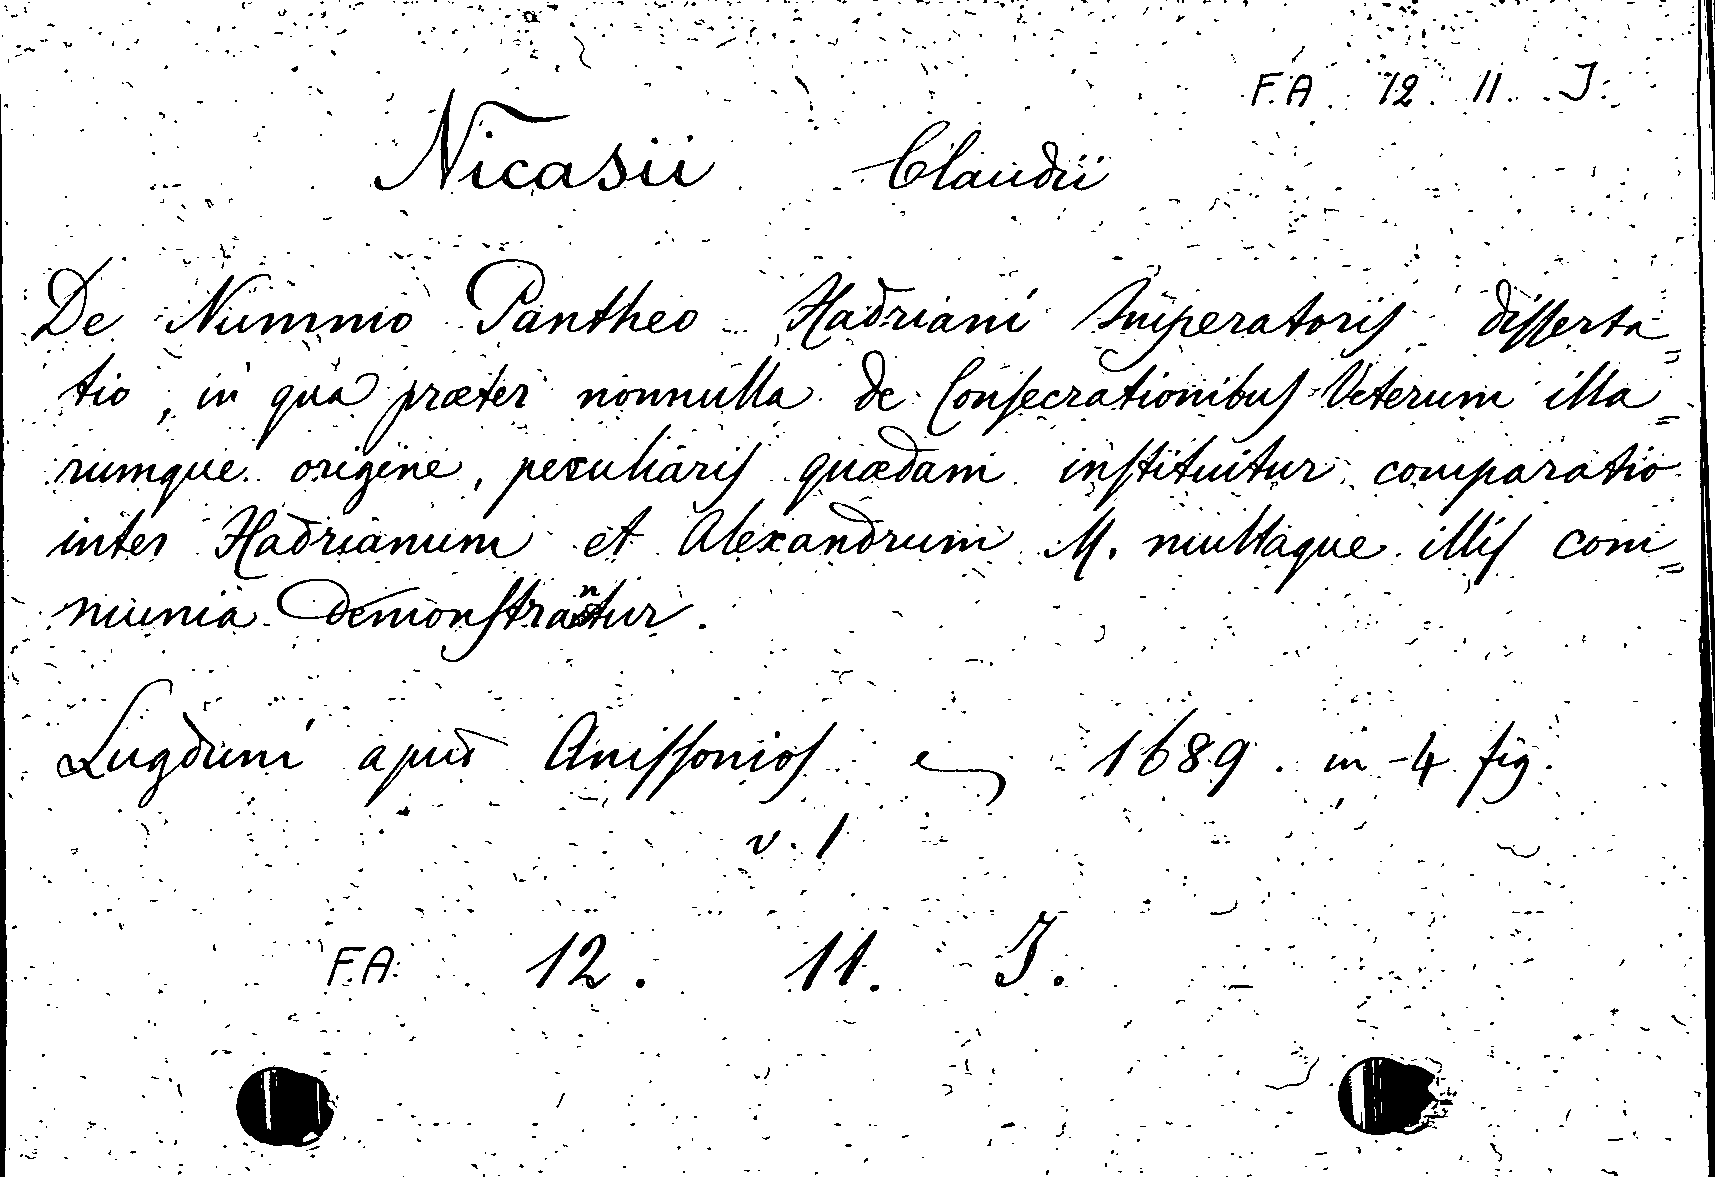 F.A. 12. 11. J.
Nicasii Claudii
De Nummo Pantheo Hadriani Imperatoris disserta=
tio, in qua præter nonnulla de Consecrationibus Veterum illa=
rumque origine, peculiaris quædam instituitur comparatio
inter Hadrianum et Alexandrum M. multaque illis com=
munia demonstrantur.
Lugduni apud Anissonios 1689. in-4 fig.
v. 1
F.A. 12. 11. J.